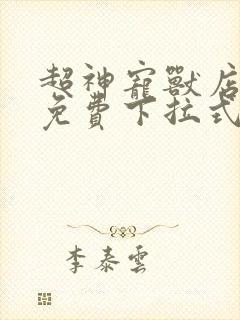 超神寵獸店
免費下拉式
李泰雲